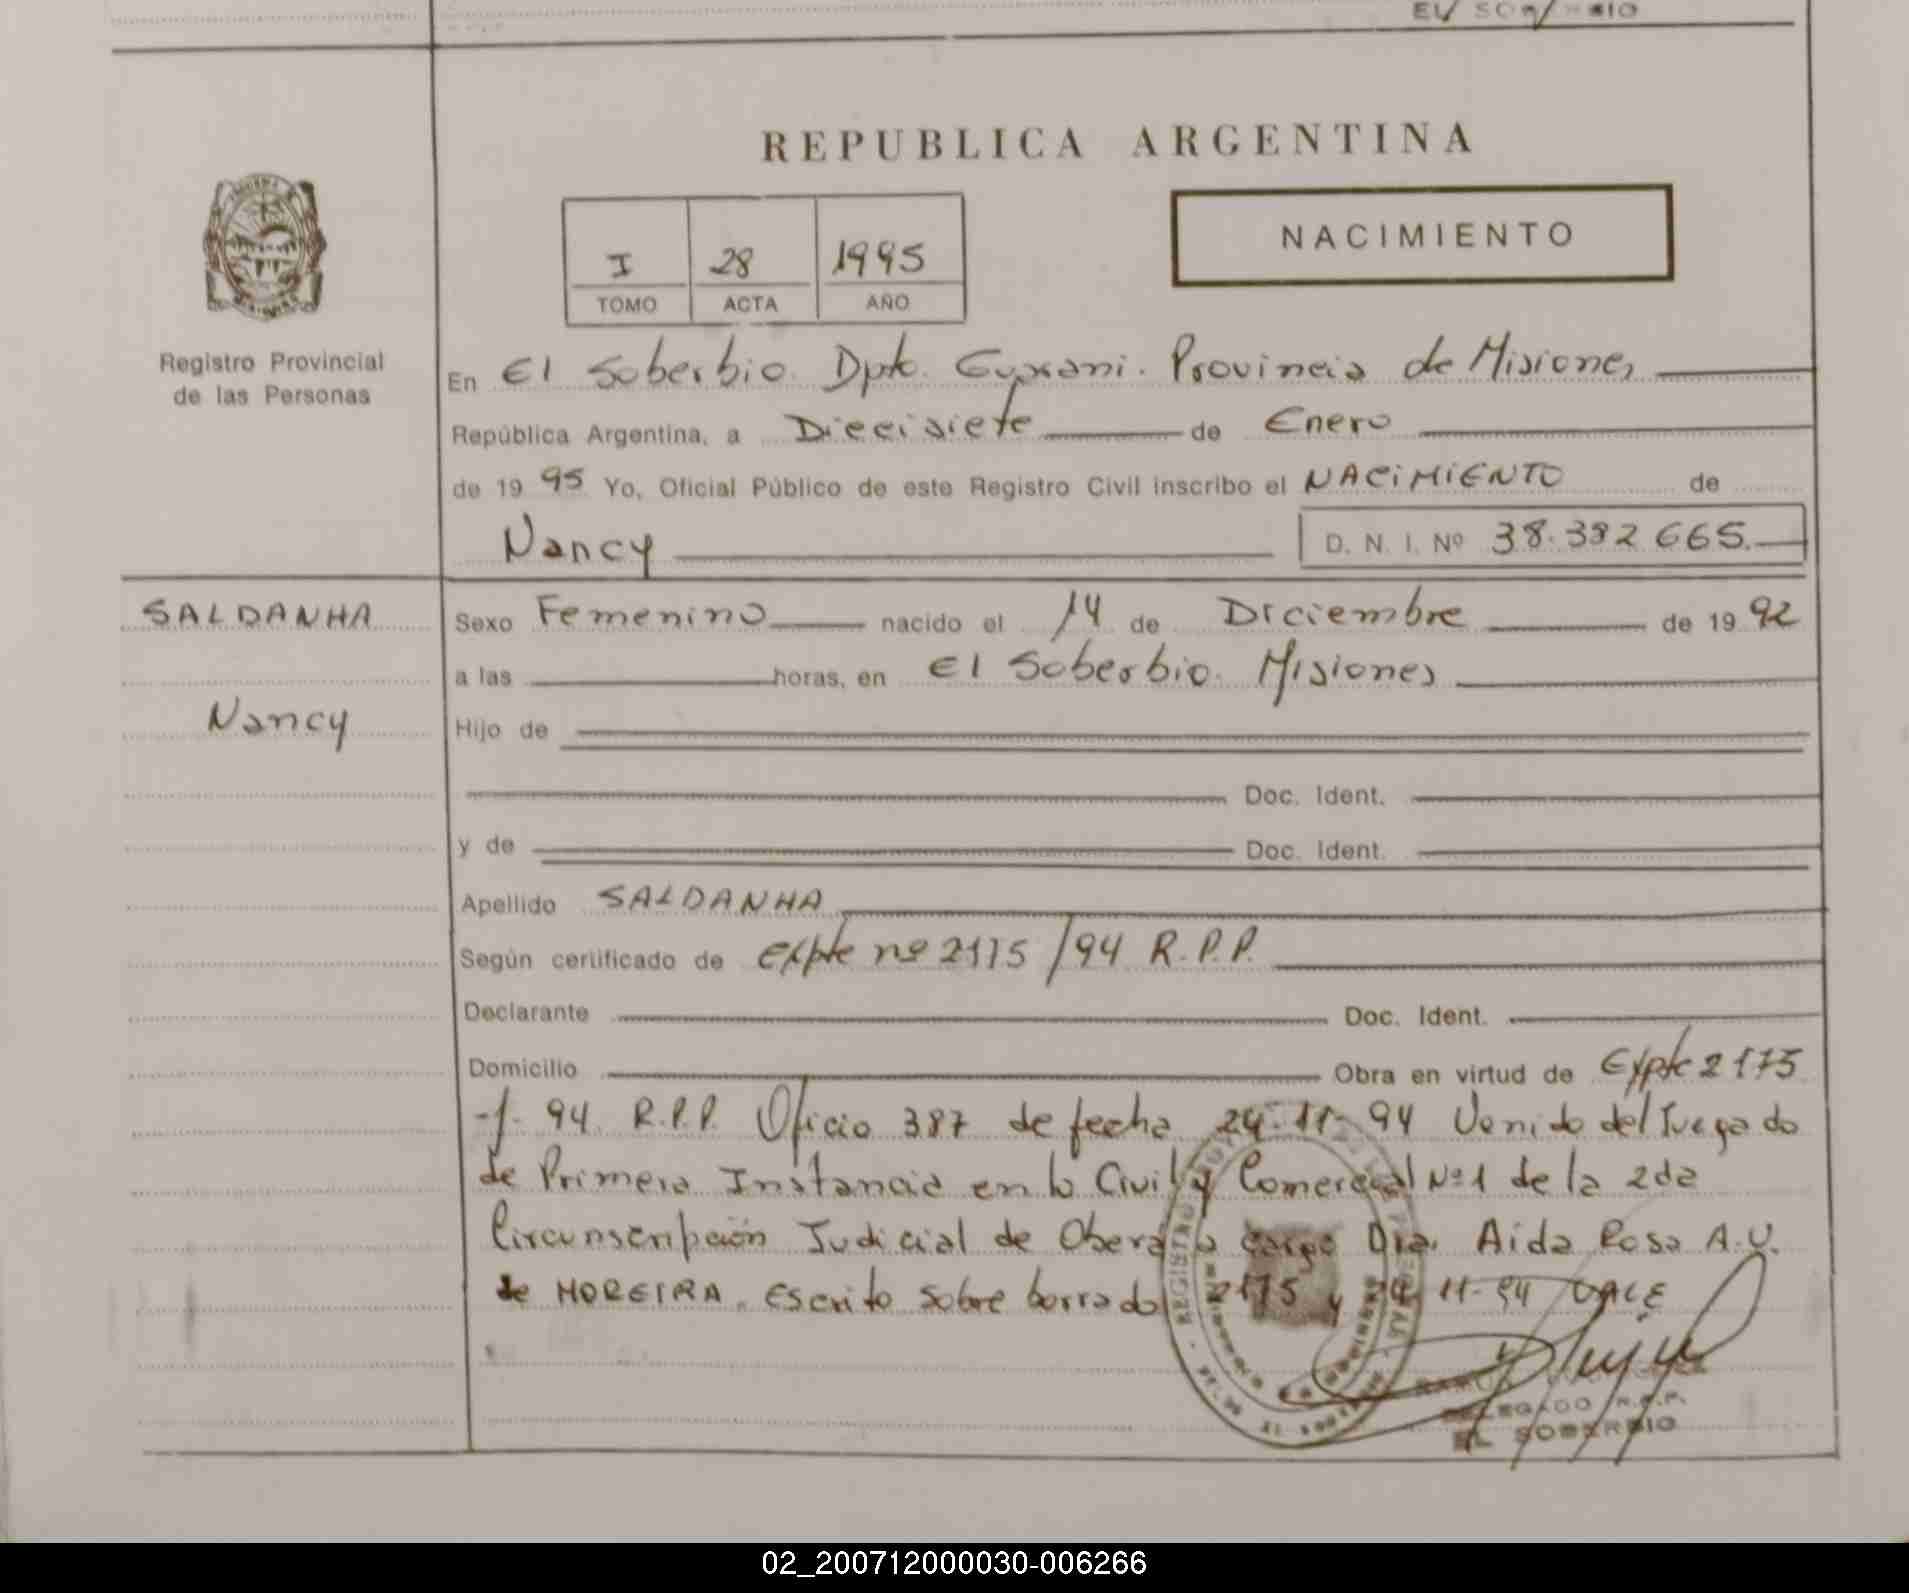 EL SOBERBIO
REPUBLICA ARGENTINA
NACIMIENTO
I 28 1995
TOMO ACTA AÑO
Registro Provincial
de las Personas
En El Soberbio. Dpto. Guarani. Provincia de Misiones
República Argentina, a Diecisiete de Enero
de 1995 Yo, Oficial Público de este Registro Civil inscribo el NACIMIENTO de
Nancy D. N. I. Nº 38.382 665.
SALDANHA
Nancy
Sexo Femenino nacido el 14 de Diciembre de 1992
a las horas, en El Soberbio. Misiones
Hijo de
Doc. Ident.
y de Doc. Ident.
Apellido SALDANHA
Según certificado de Expte nº 2175/94 R.P.P.
Declarante Doc. Ident.
Domicilio Obra en virtud de Expte 2175
-/- 94 R.P.P. Oficio 387 de fecha 24-11-94 Venido del Juzgado
de Primera Instancia en lo Civil y Comercial Nº1 de la 2da
Circunscripción Judicial de Obera a cargo Dra. Aida Rosa A.V.
de MOREIRA. Escrito sobre borrado 2175 y 24-11-94 VALE
DELEGADO R.P.P.
EL SOBERBIO
02_200712000030-006266